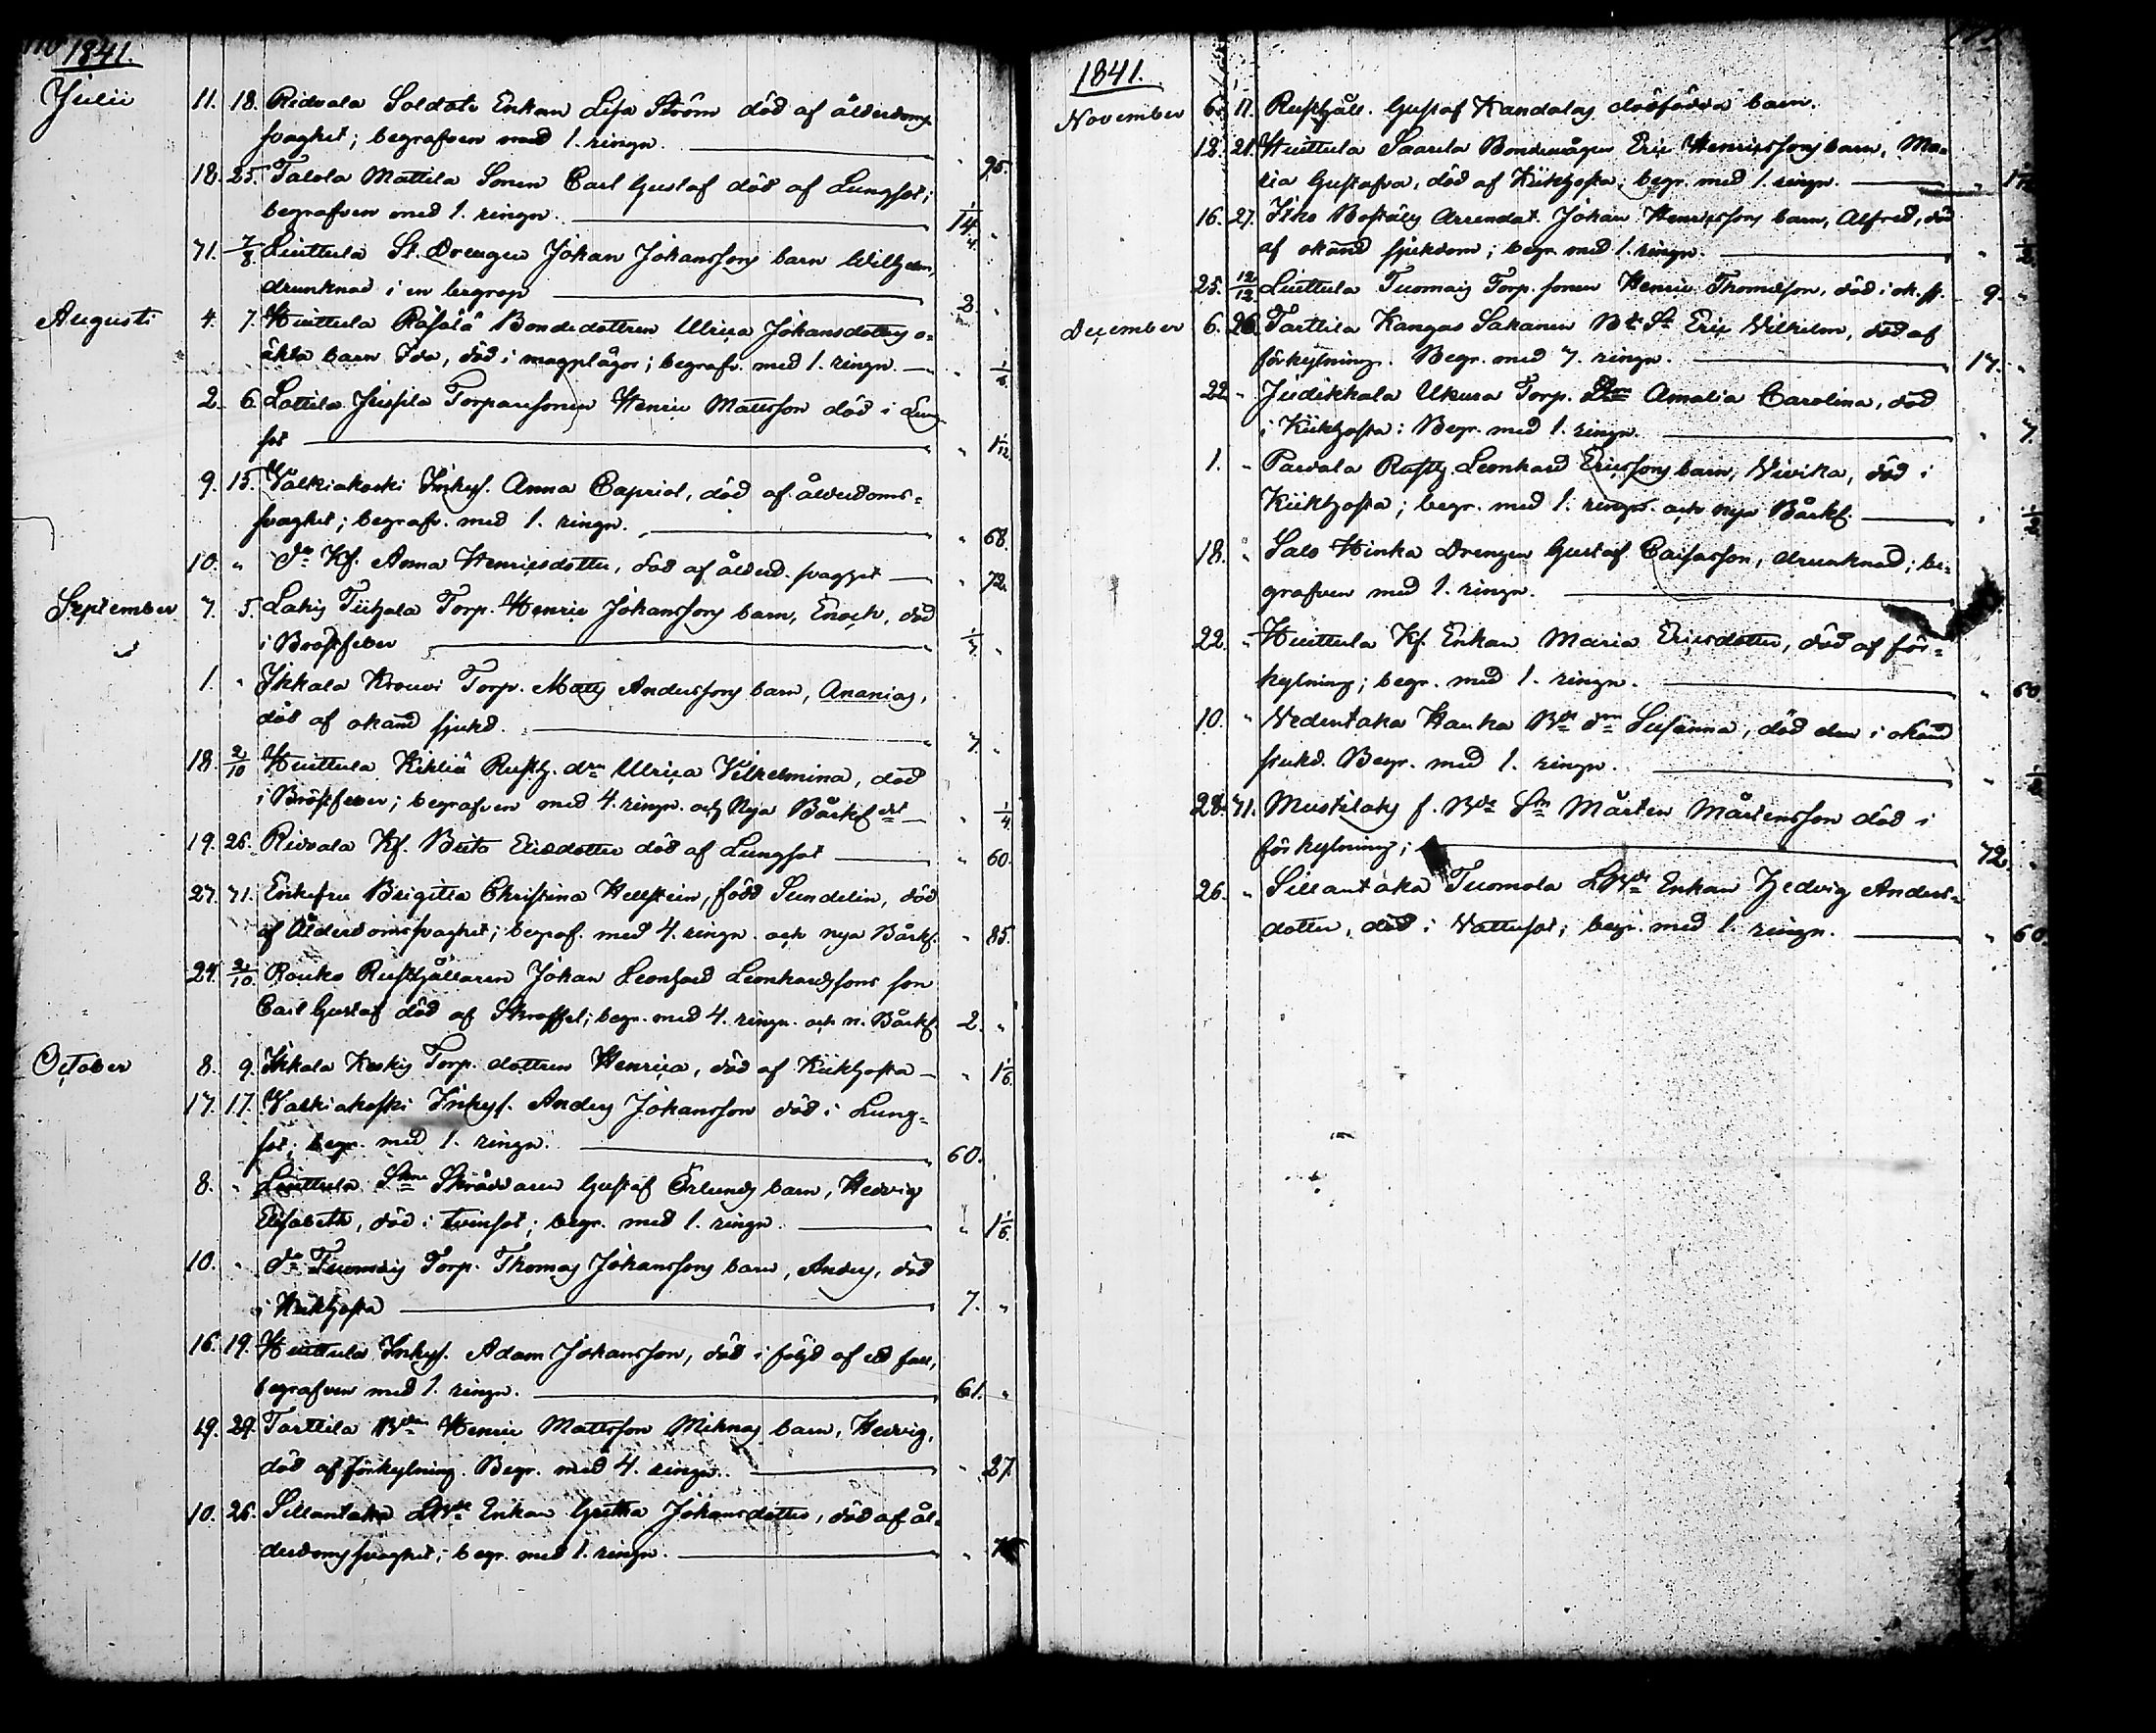 1841.
Julii 11. 18. Ridvala Soldats Enkan Lisa Ström död af ålderdoms
svaghet; begrafven med 1. ringn. " 95.
18. 25. Talola Mattila Sonen Carl Gustaf död af Lungsot;
begrafven med 1. ringn. "
Liuttula St. Drengen Johan Johanssons barn Wilhelm,
drunknad i en lergrop 2. "
Augusti 4. 7. Huittula Rasälä Bondedottren Ulrica Johansdotters o-
äkta barn Ida, död i magplågor; begrafv. med 1. ringn. "
2. 6. Lottila Jussila Torparesonen Henric Mattsson död i Lung
sot " 1 1/12.
9. 15. Valkiakoski Inhys. Anna Capriol, död af ålderdoms-
svaghet; begrafv. med 1. ringn. " 68.
10. " Do Kf. Anna Henricsdotter, död af ålderd. svaghet " 72.
September 7. 5. Lahis Torp. Henric Johanssons barn, Enoch, död
i Bröstfeber "
1. " Ikkala Krouvi Torp. Matts Anderssons barn, Ananias,
död af okänd sjukd. 7. "
18. 2/10 Huittula Kikliä Rusth. drn Ulrica Vilhelmina, död
i Bröstfeber; begrafven med 4. ringn. och Nya Bårkl " 1/4.
19. 26. Ridvala Kf. Brita Ericsdotter död af Lungsot " 60.
27. 71. Enkefru Brigitta Christina Hellstein, född Sundelin, död
af Ålderdomssvaghet; begraf. med 4. ringn. och nya Bårkl. " 85.
24. 2/10. Rouko Rusthållaren Johan Leonhard Leonhardssons son
Carl Gustaf död af Skroffel; begr. med 4. ringn. och n. Bårkl. 2. "
October 8. 9. Ikkala Keskis Torp. dottren Henrica, död af Kikhosta " 1 1/6.
17. 17. Valkiakoski Inhys. Anders Johansson död i Lung-
sot; begr. med 1. ringn. 60.
8. " Liuttula Skräddaren Gustaf Örlunds barn, Hedvig
Elisabeth, död i tvinsot; begr. med 1. ringn. " 1 1/6.
10. " Do Tuomais Torp. Thomas Johanssons barn, Anders, död
i Kikhosta 7. "
16. 19. Huittula Inhys. Adam Johansson, död i följd af ett fall,
begrafven med 1. ringn. 61. "
19. 24. Tarttila Henric Mattsson Miknas barn, Hedvig,
död af förkylning. Begr. med 4. ringn. " 27.
10. 26. Sillantaka Enkan Gretha Johansdotter, död af ål-
derdomssvaghet; begr. med 1. ringn. "
1841.
November 6. 11. Rusthåll. Gustaf Kandolas dödfödda barn.
12. 21. Huittula Saarela Bondemågen Eric Henricssons barn, Ma-
ria Gustafva, död af Kikhosta; begr. med 1. ringn. "
16. 27. Itko Boställs Arrendat. Johan Henricssons barn, Alfred, död
af okänd sjukdom; begr. med 1. ringn. " 1/2.
25. 12/12 Liuttula Tuomais Torp. sonen Henric Thomasson, död i ok. sj. 9. "
December 6. 26. Tarttila Kangas Sakarin Eric Wilhelm, död af
förkylning. Begr. med 7. ringn. 17. "
22. " Judikkala Ukura Torp. Amalia Carolina, död
i Kikhosta: Begr. med 1. ringn. " 7.
1. " Parvala Rusth. Leonhard Ericssons barn, Vivika, död i
Kikhosta; begr. med 1. ringn. och nya Bårkl. " 1/2
18. " Salo Hinka Drengen Gustaf Caisasson, drunknad; be-
grafven med 1. ringn.
22. " Huittula Kf. Enkan Maria Ericsdotter, död af för-
kylning; begr. med 1. ringn. " 60
10. " Vedentaka Hauka Susanna, död den i okänd
sjukd. Begr. med 1. ringn. "
28. 71. Mustilats f. Mårten Mårtensson död i
förkylning; 72. "
26. " Sillantaka Tuomola Enkan Hedvig Anders-
dotter, död i Vattusot; begr. med 1. ringn. " 60.